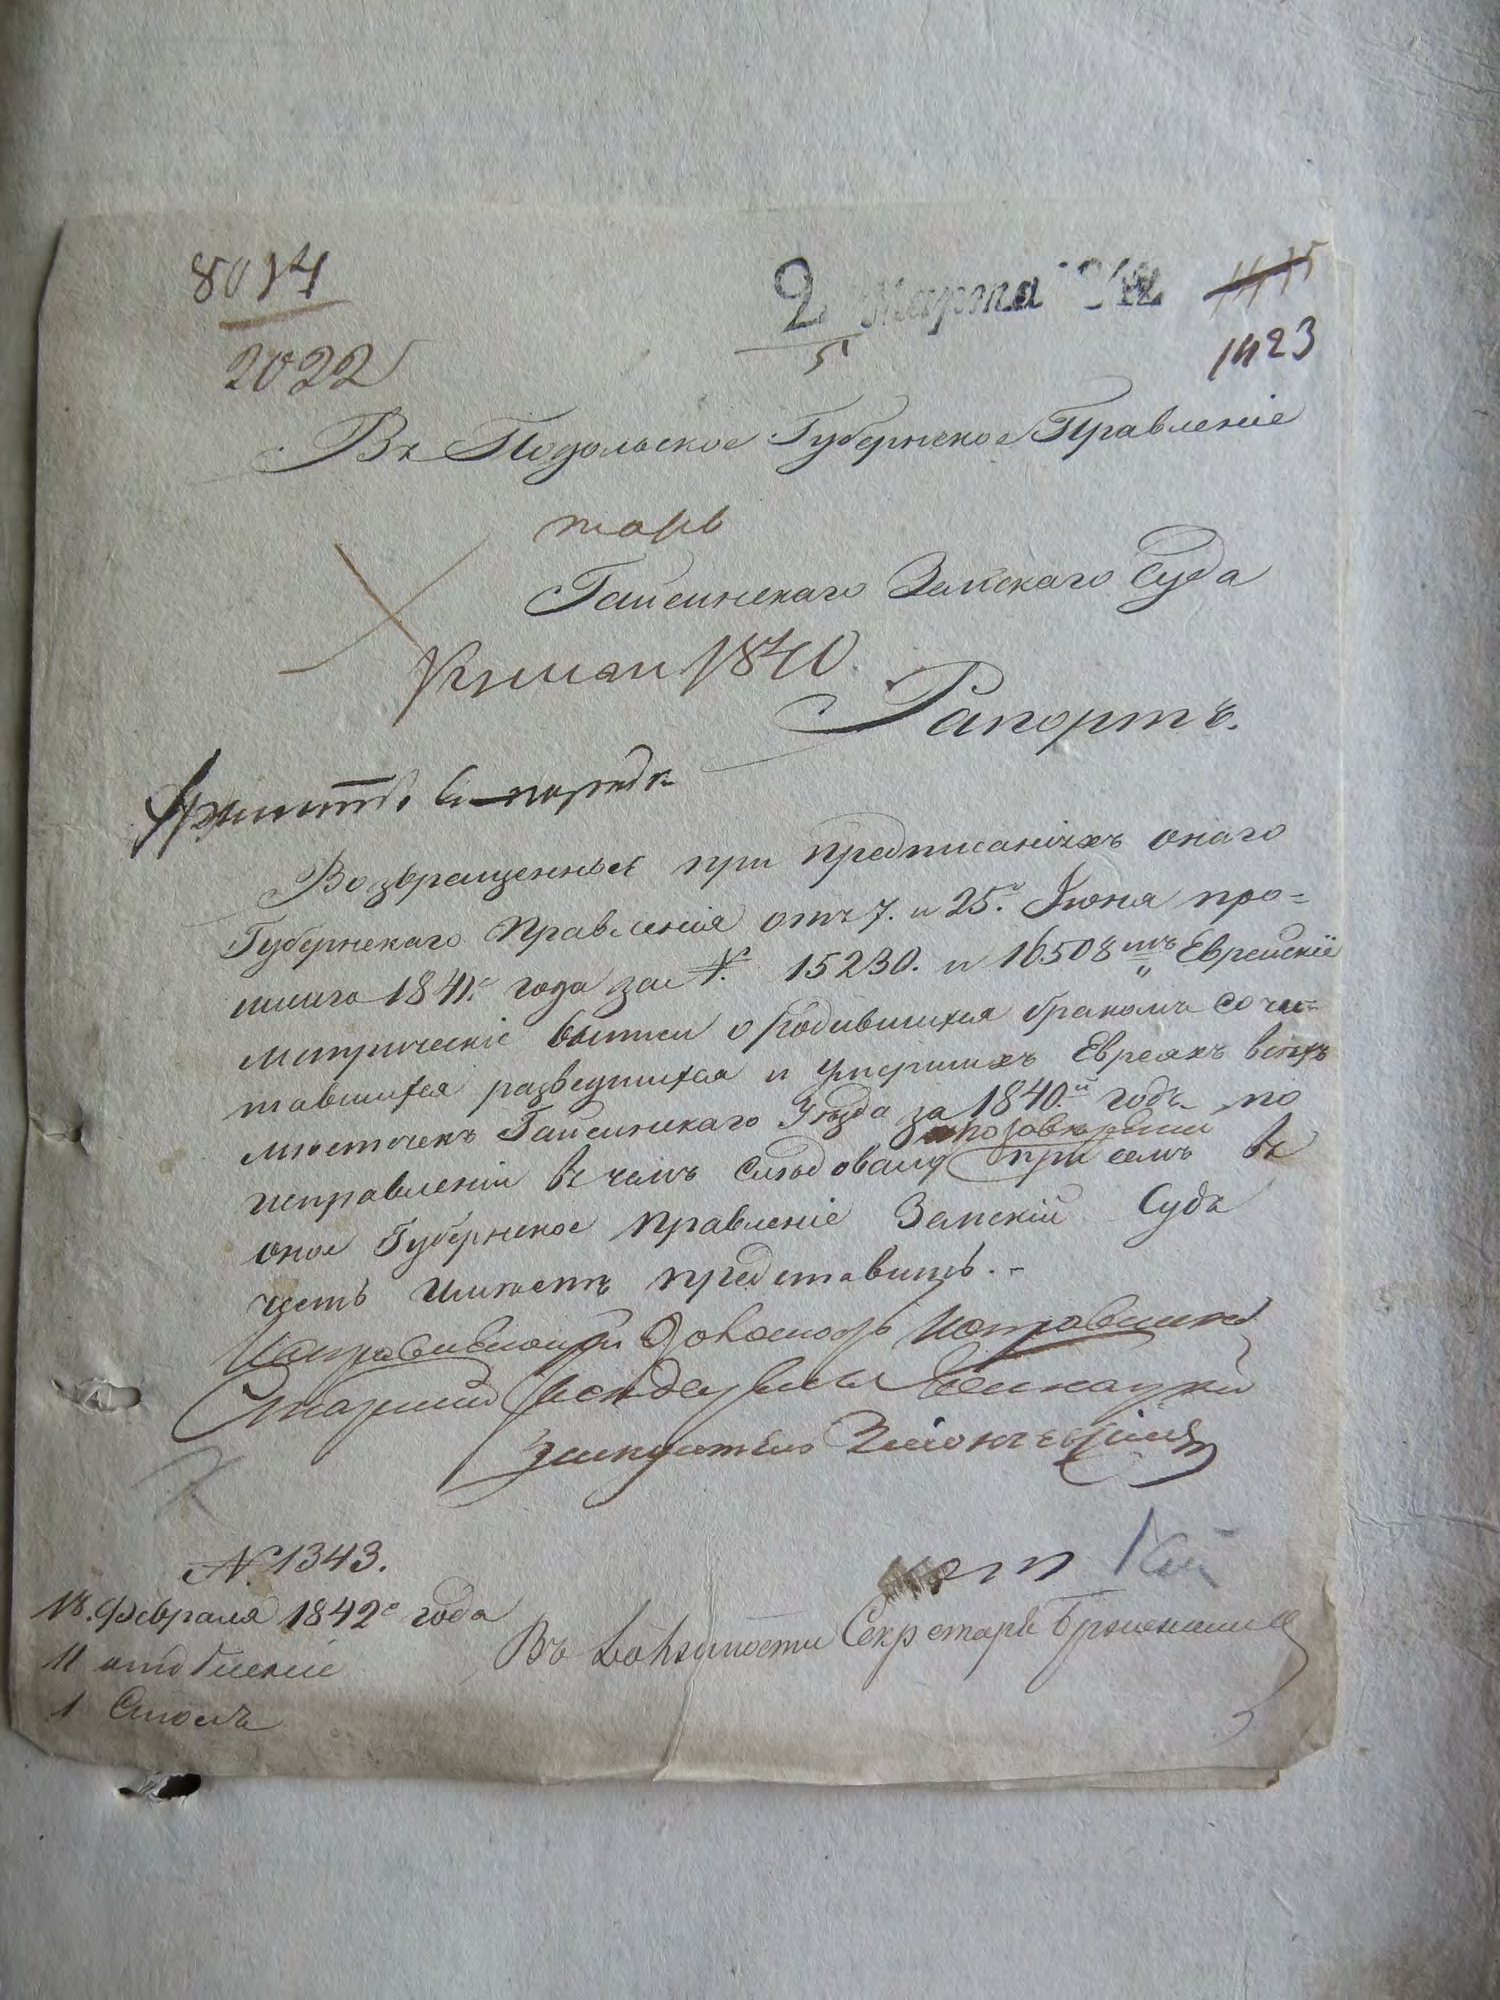 8014
2 Марта 842
2022
5
1423
Въ Подольское Губернское Правленіе
Гайсинскаго Земскаго Суда
1840
Рапортъ.
Возвращенные при предписаніяхъ онаго
Губернскаго Правленія отъ 7. и 25.го Іюня про=
шлаго 1841.го года за № 15230. и 16508мъ Еврейскіе
метрическіе книги о родившихся бракомъ соче=
тавшихся разведшихся и умершихъ Евреяхъ въ
местечекъ Гайсинскаго Уѣзда за 1840.й годъ по
исправленіи въ чемъ следовало при семъ въ
оное Губернское Правленіе Земскій Судъ
честь имѣетъ представить.
Исправляющій должность Исправника
Старшій
Засѣдатель
№ 1343.
18. Февраля 1842го года
11 отдѣленіе
1 Столъ
Въ должности Секретаря